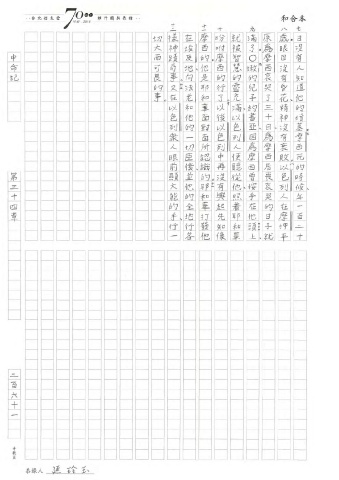 和合本
70
七
日沒有人知道他的墳墓摩西死的時候年一百二十
八
歲眼目沒有昏花精神沒有衰敗以色列人在摩押平
原為摩西哀哭了三十日為摩西居喪哀哭的日子就
九
滿了嫩的兒子約書亞因為摩西曾按手在他頭上
就被智慧的靈充滿以色列人便聽從他照著耶和華
十
吩咐摩西的行了以後以色列中再沒有興起先知像
十一
摩西的他是耶和華面對面所認識的耶和華打發他
在埃及地向法老和他的一切臣僕並他的全地行各
十二
樣神蹟奇事又在以色列眾人眼前顯大能的手行一
切大而可畏的事
申命記
第三十四章
二百六十一